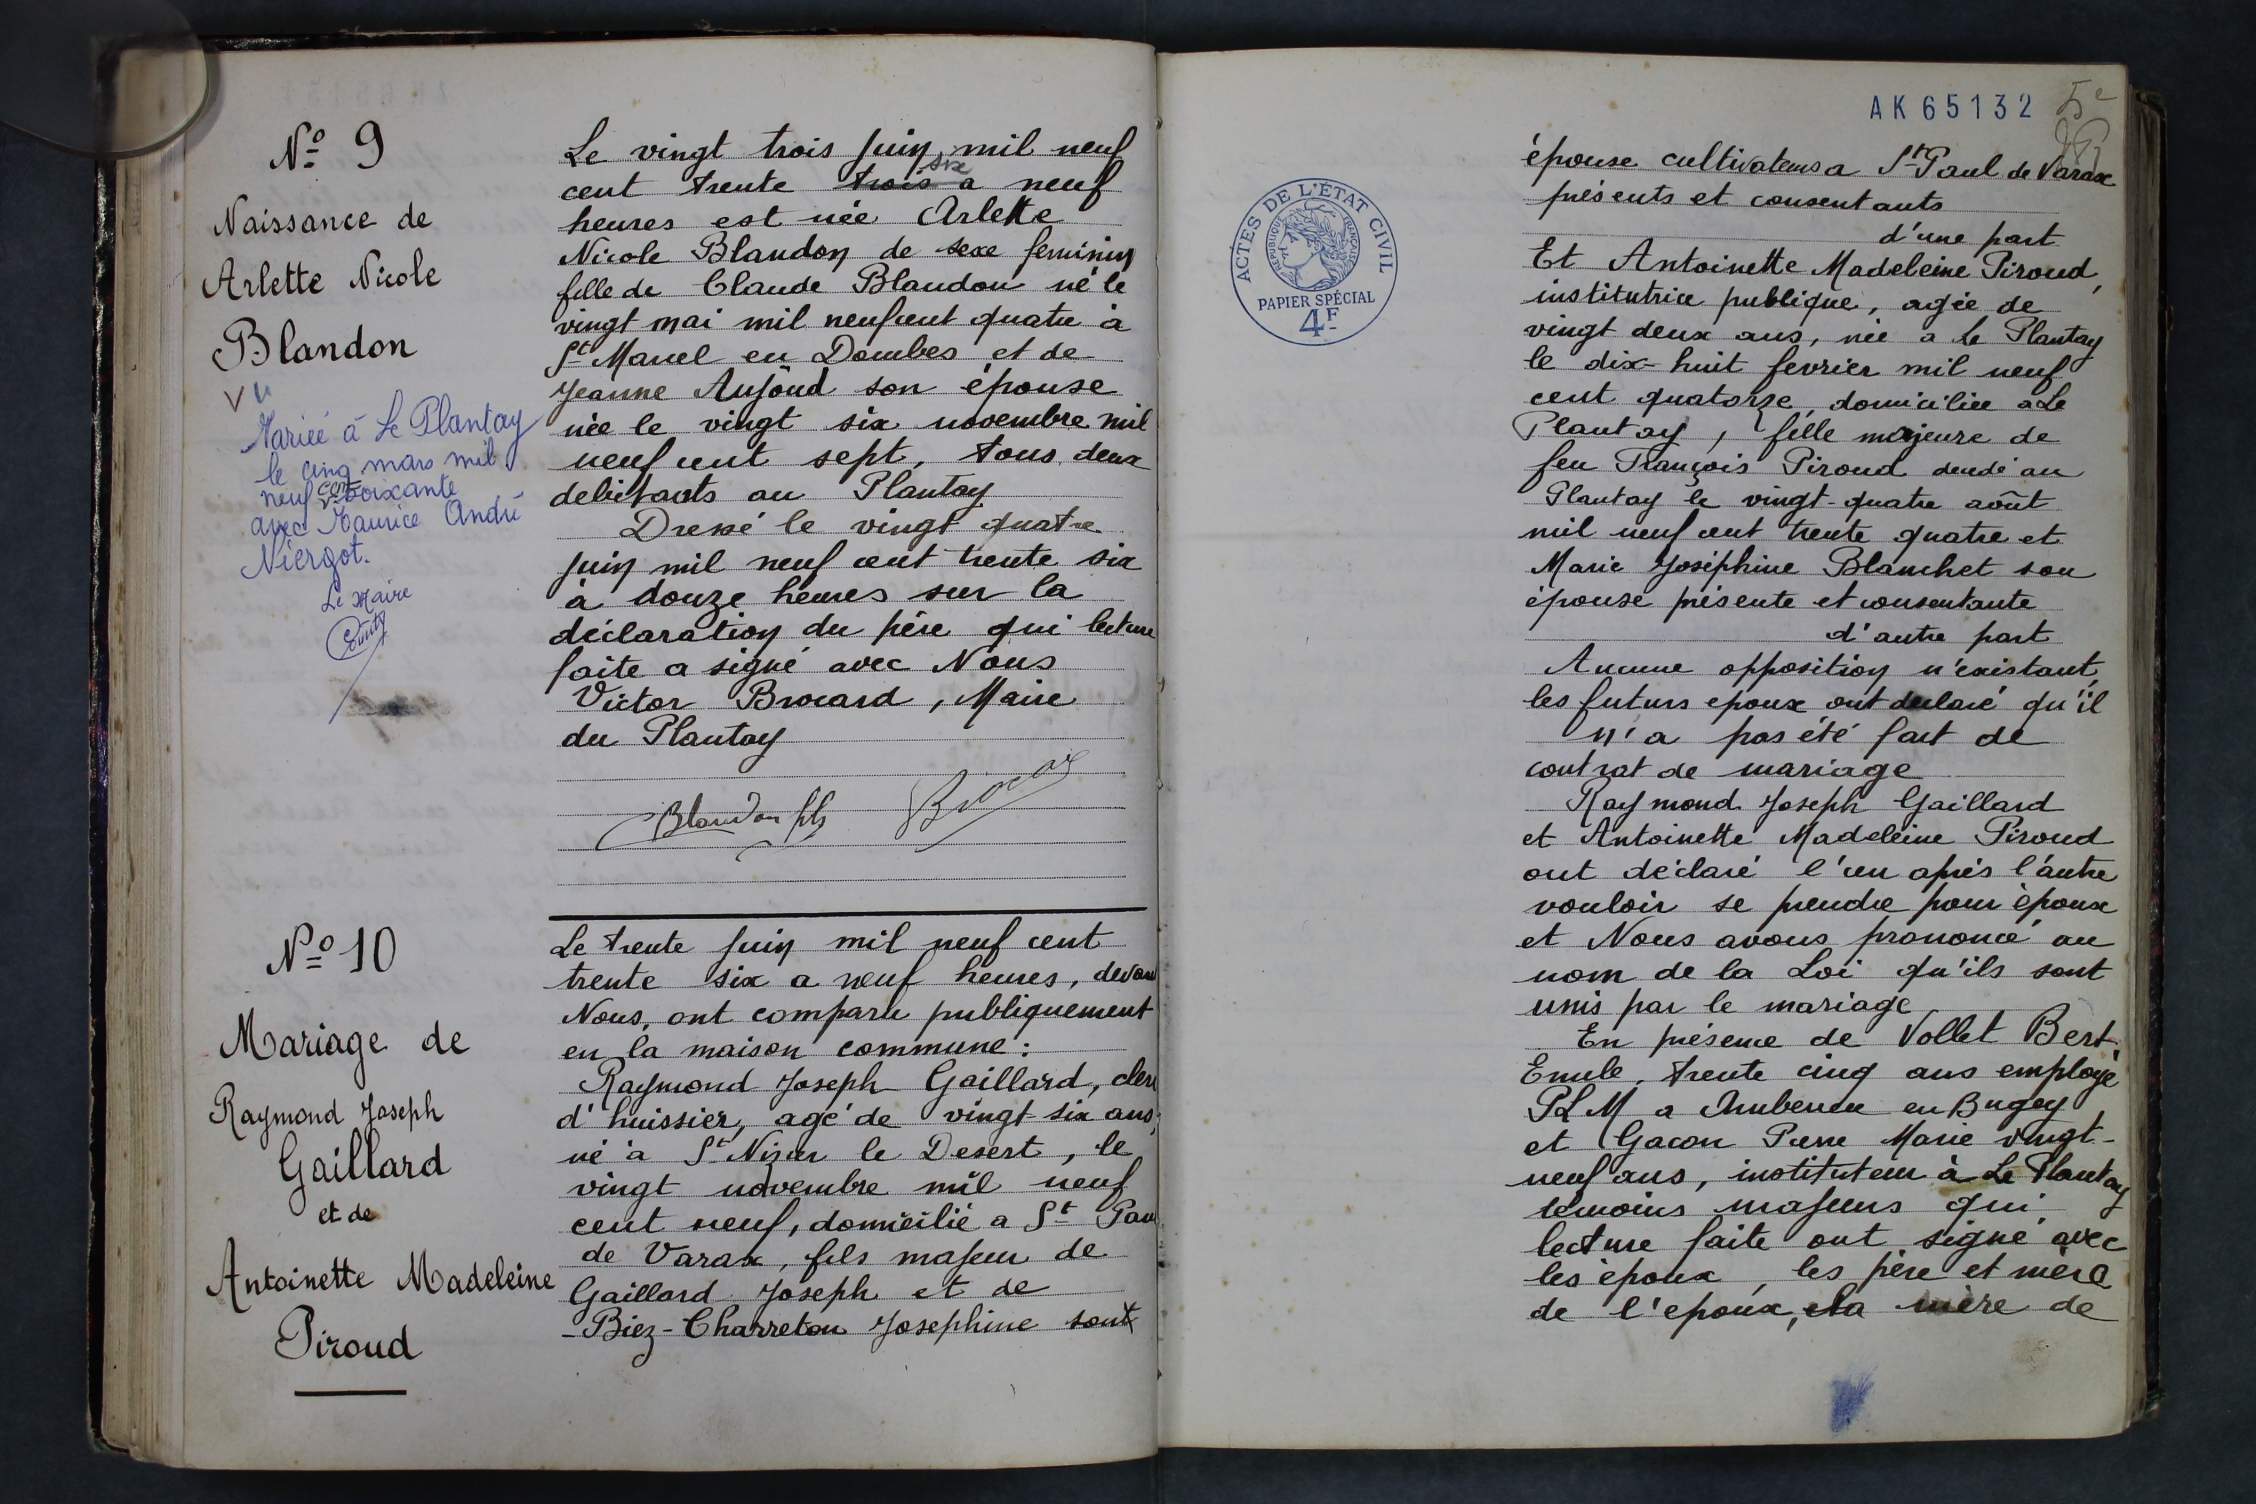 Nº 9
Naissance de
Arlette Nicole
Blandon
Vu
Mariée à Le Plantay
le cinq mars mil
neuf cent soixante
avec Maurice André
Niergot.
Le Maire
Le vingt trois juin mil neuf
cent trente trois six a neuf
heures est née Arlette
Nicole Blandon de sexe feminin
fille de Claude Blandon né le
vingt mai mil neuf cent quatre à
St Marcel en Dombes et de
Jeanne Aujoud son épouse
née le vingt six novembre mil
neuf cent sept, tous deux
debitants au Plantay
Dressé le vingt quatre
juin mil neuf cent trente six
à douze heures sur la
déclaration du père qui lecture
faite a signé avec Nous
Victor Brocard, Maire
du Plantay
Blandon fils Brocard
Nº 10
Mariage de
Raymond Joseph
Gaillard
et de
Antoinette Madeleine
Piroud
Le trente juin mil neuf cent
trente six a neuf heures, devant
Nous, ont comparu publiquement
en la maison commune :
Raymond Joseph Gaillard, clerc
d'huissier, agé de vingt six ans,
né à St Nizier le Desert, le
vingt novembre mil neuf
cent neuf, domicilié a St Paul
de Varax, fils majeur de
Gaillard Joseph et de
Biez-Charreton Josephine sont
AK65132
5e
ACTES DE L'ÉTAT CIVIL
RÉPUBLIQUE FRANÇAISE
PAPIER SPÉCIAL
4F
épouse cultivateurs a St Paul de Varax
présents et consentants
d'une part
Et Antoinette Madeleine Piroud,
institutrice publique, agée de
vingt deux ans, née a Le Plantay
le dix-huit fevrier mil neuf
cent quatorze domiciliée a Le
Plantay, fille majeure de
feu François Piroud decedé au
Plantay le vingt-quatre août
mil neuf cent trente quatre et
Marie Joséphine Blanchet son
épouse présente et consentante
d'autre part
Aucune opposition n'existant,
les futurs epoux ont declaré qu'il
n'a pas été fait de
contrat de mariage
Raymond Joseph Gaillard
et Antoinette Madeleine Piroud
ont déclaré l'un après l'autre
vouloir se prendre pour époux
et Nous avons prononcé au
nom de la Loi qu'ils sont
unis par le mariage
En présence de Vollet Bert
Emile, trente cinq ans employé
PLM a Amberieu en Bugey
et Gacon Pierre Marie vingt-
neuf ans, instituteur à Le Plantay
temoins majeurs qui
lecture faite ont signé avec
les époux, les père et mère
de l'epoux, et la mère de